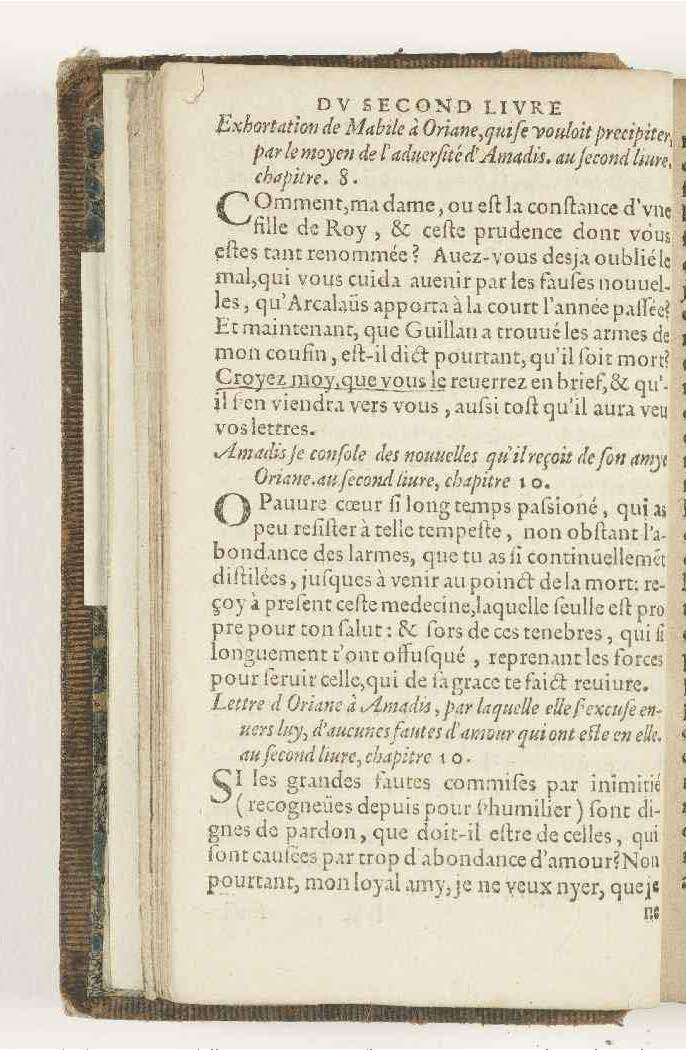 DV SECOND LIVRE
Exhortation de Mabile à Oriane, qui ſe vouloit precipiter,
par le moyen de l'aduerſité d'Amadis. au ſecond liure,
chapitre. 8.
COmment, ma dame, ou eſt la conſtance d'vne
fille de Roy, & ceſte prudence dont vous
eſtes tant renommée? Auez-vous desja oublié le
mal, qui vous cuida auenir par les fauſes nouuel-
les, qu'Arcalaüs apporta à la court l'année paſſée?
Et maintenant, que Guillan a trouué les armes de
mon couſin, eſt-il dict pourtant, qu'il ſoit mort?
Croyez moy, que vous le reuerrez en brief, & qu'-
il ſ'en viendra vers vous, auſsi toſt qu'il aura veu
vos lettres.
Amadis ſe conſole des nouuelles qu'il reçoit de ſon amye
Oriane. au ſecond liure, chapitre 10.
O Pauure cœur ſi long temps paſsioné, qui as
peu reſiſter à telle tempeſte, non obſtant l'a-
bondance des larmes, que tu as ſi continuellemẽt
diſtilées, juſques à venir au poinct de la mort: re-
çoy à preſent ceſte medecine, laquelle ſeulle eſt pro
pre pour ton ſalut: & ſors de ces tenebres, qui ſi
longuement t'ont offuſqué, reprenant les forces
pour ſeruir celle, qui de ſa grace te faict reuiure.
Lettre d'Oriane à Amadis, par laquelle elle ſ'excuſe en-
uers luy, d'aucunes fautes d'amour qui ont eſte en elle.
au ſecond liure, chapitre 10.
SI les grandes fautes commiſes par inimitié
(recogneües depuis pour ſ'humilier) ſont di-
gnes de pardon, que doit-il eſtre de celles, qui
ſont cauſées par trop d'abondance d'amour? Non
pourtant, mon loyal amy, je ne veux nyer, que je
ne